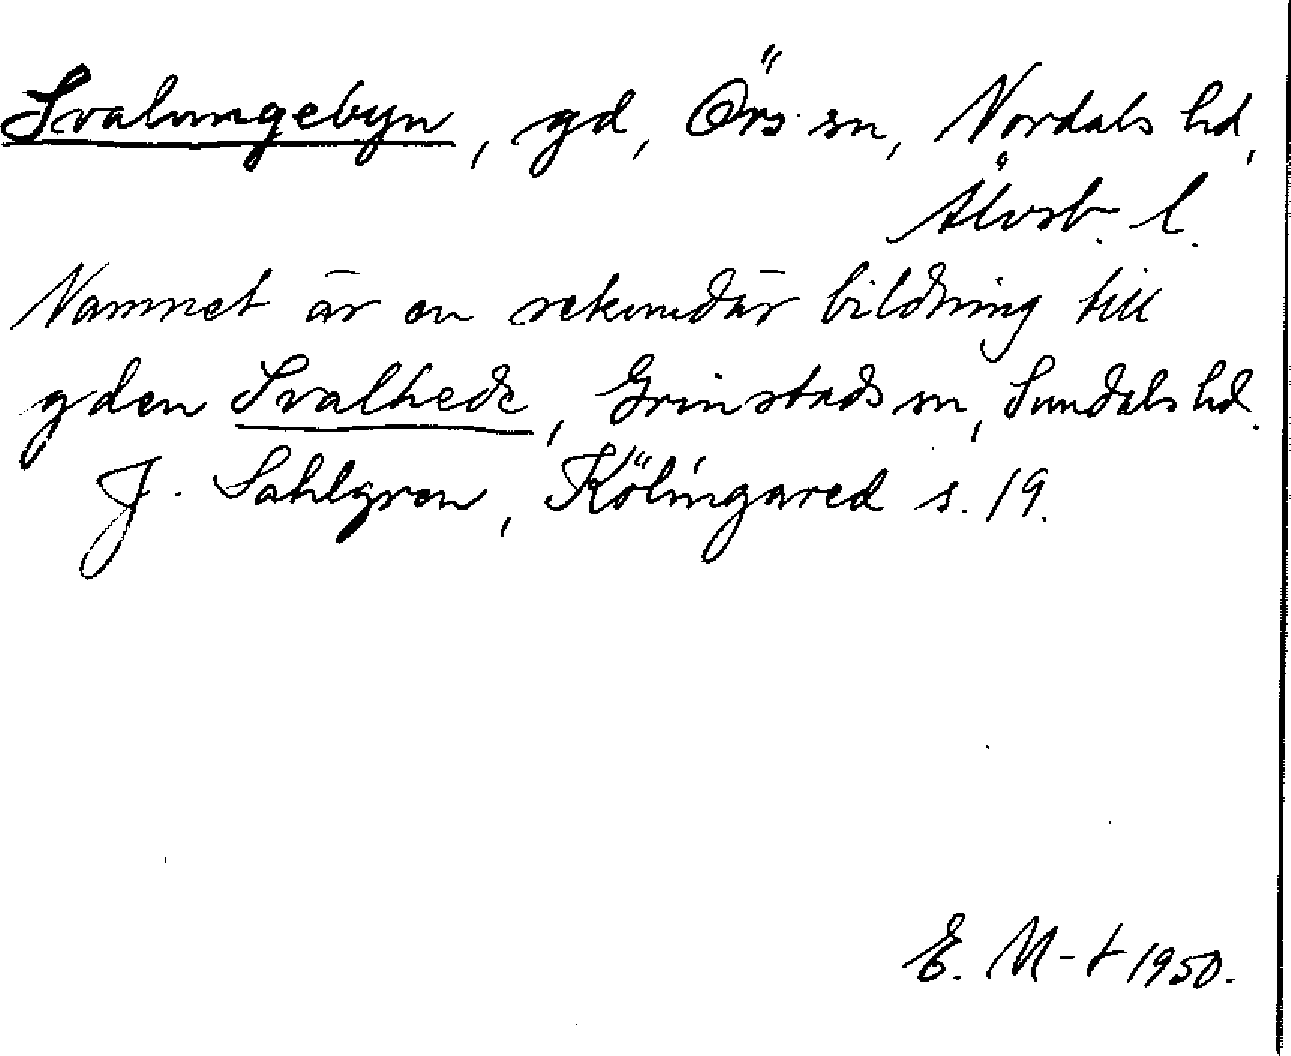 Svalungebyn, gd, Örs sn, Nordals hd,
Älvsb. l.
Namnet är en sekundär bildning till
gden Svalhede, Grinstads sn, Sundals hd.
J. Sahlgren, Kölingared s. 19.
E. M-t 1950.